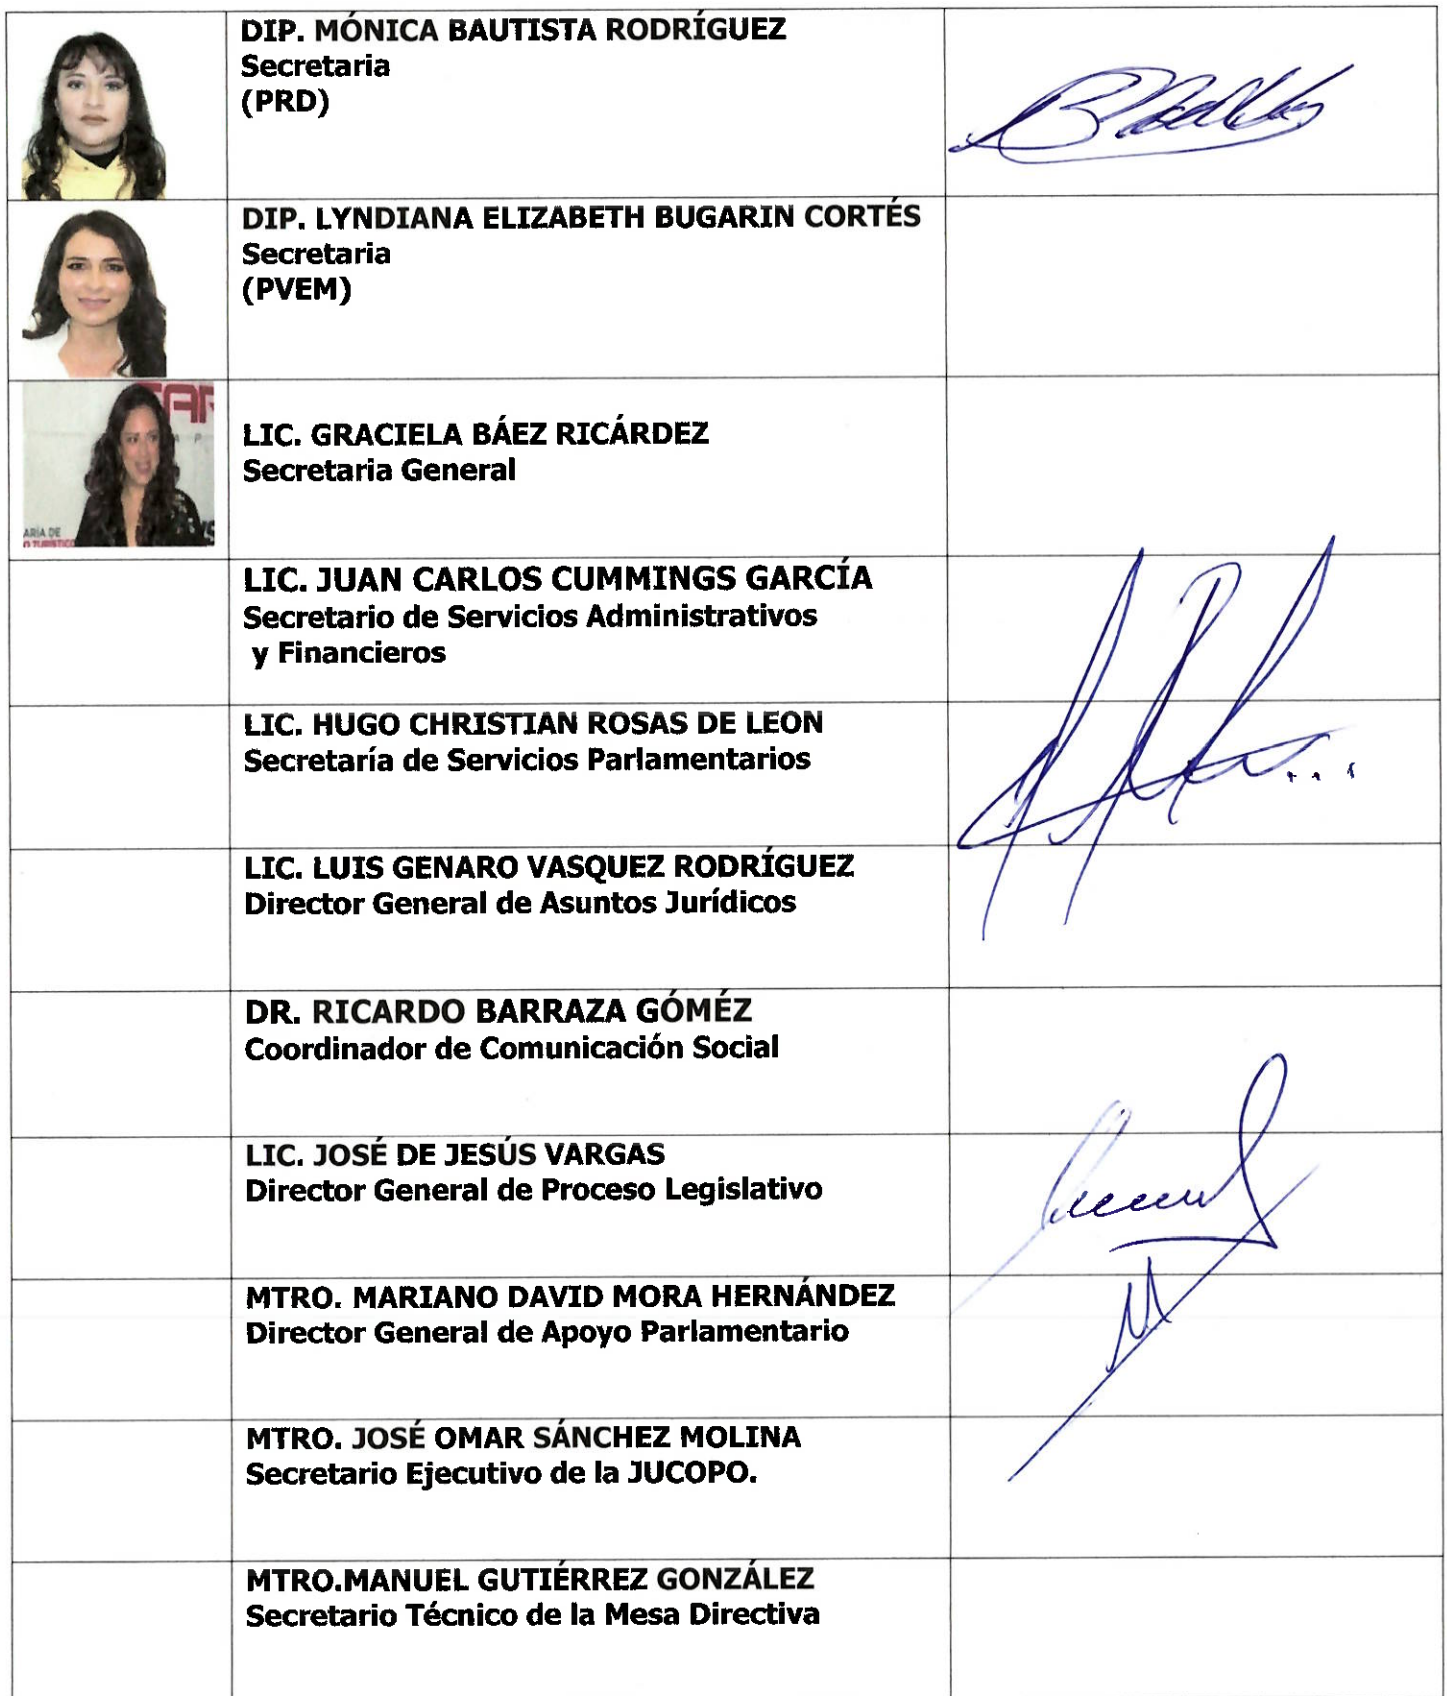 DIP. MÓNICA BAUTISTA RODRÍGUEZ
Secretaria
(PRD)
DIP. LYNDIANA ELIZABETH BUGARIN CORTÉS
Secretaria
(PVEM)
LIC. GRACIELA BÁEZ RICÁRDEZ
Secretaria General
ARÍA DE
O TURÍSTICO
LIC. JUAN CARLOS CUMMINGS GARCÍA
Secretario de Servicios Administrativos
y Financieros
LIC. HUGO CHRISTIAN ROSAS DE LEON
Secretaría de Servicios Parlamentarios
LIC. LUIS GENARO VASQUEZ RODRÍGUEZ
Director General de Asuntos Jurídicos
DR. RICARDO BARRAZA GÓMÉZ
Coordinador de Comunicación Social
LIC. JOSÉ DE JESÚS VARGAS
Director General de Proceso Legislativo
MTRO. MARIANO DAVID MORA HERNÁNDEZ
Director General de Apoyo Parlamentario
MTRO. JOSÉ OMAR SÁNCHEZ MOLINA
Secretario Ejecutivo de la JUCOPO.
MTRO.MANUEL GUTIÉRREZ GONZÁLEZ
Secretario Técnico de la Mesa Directiva